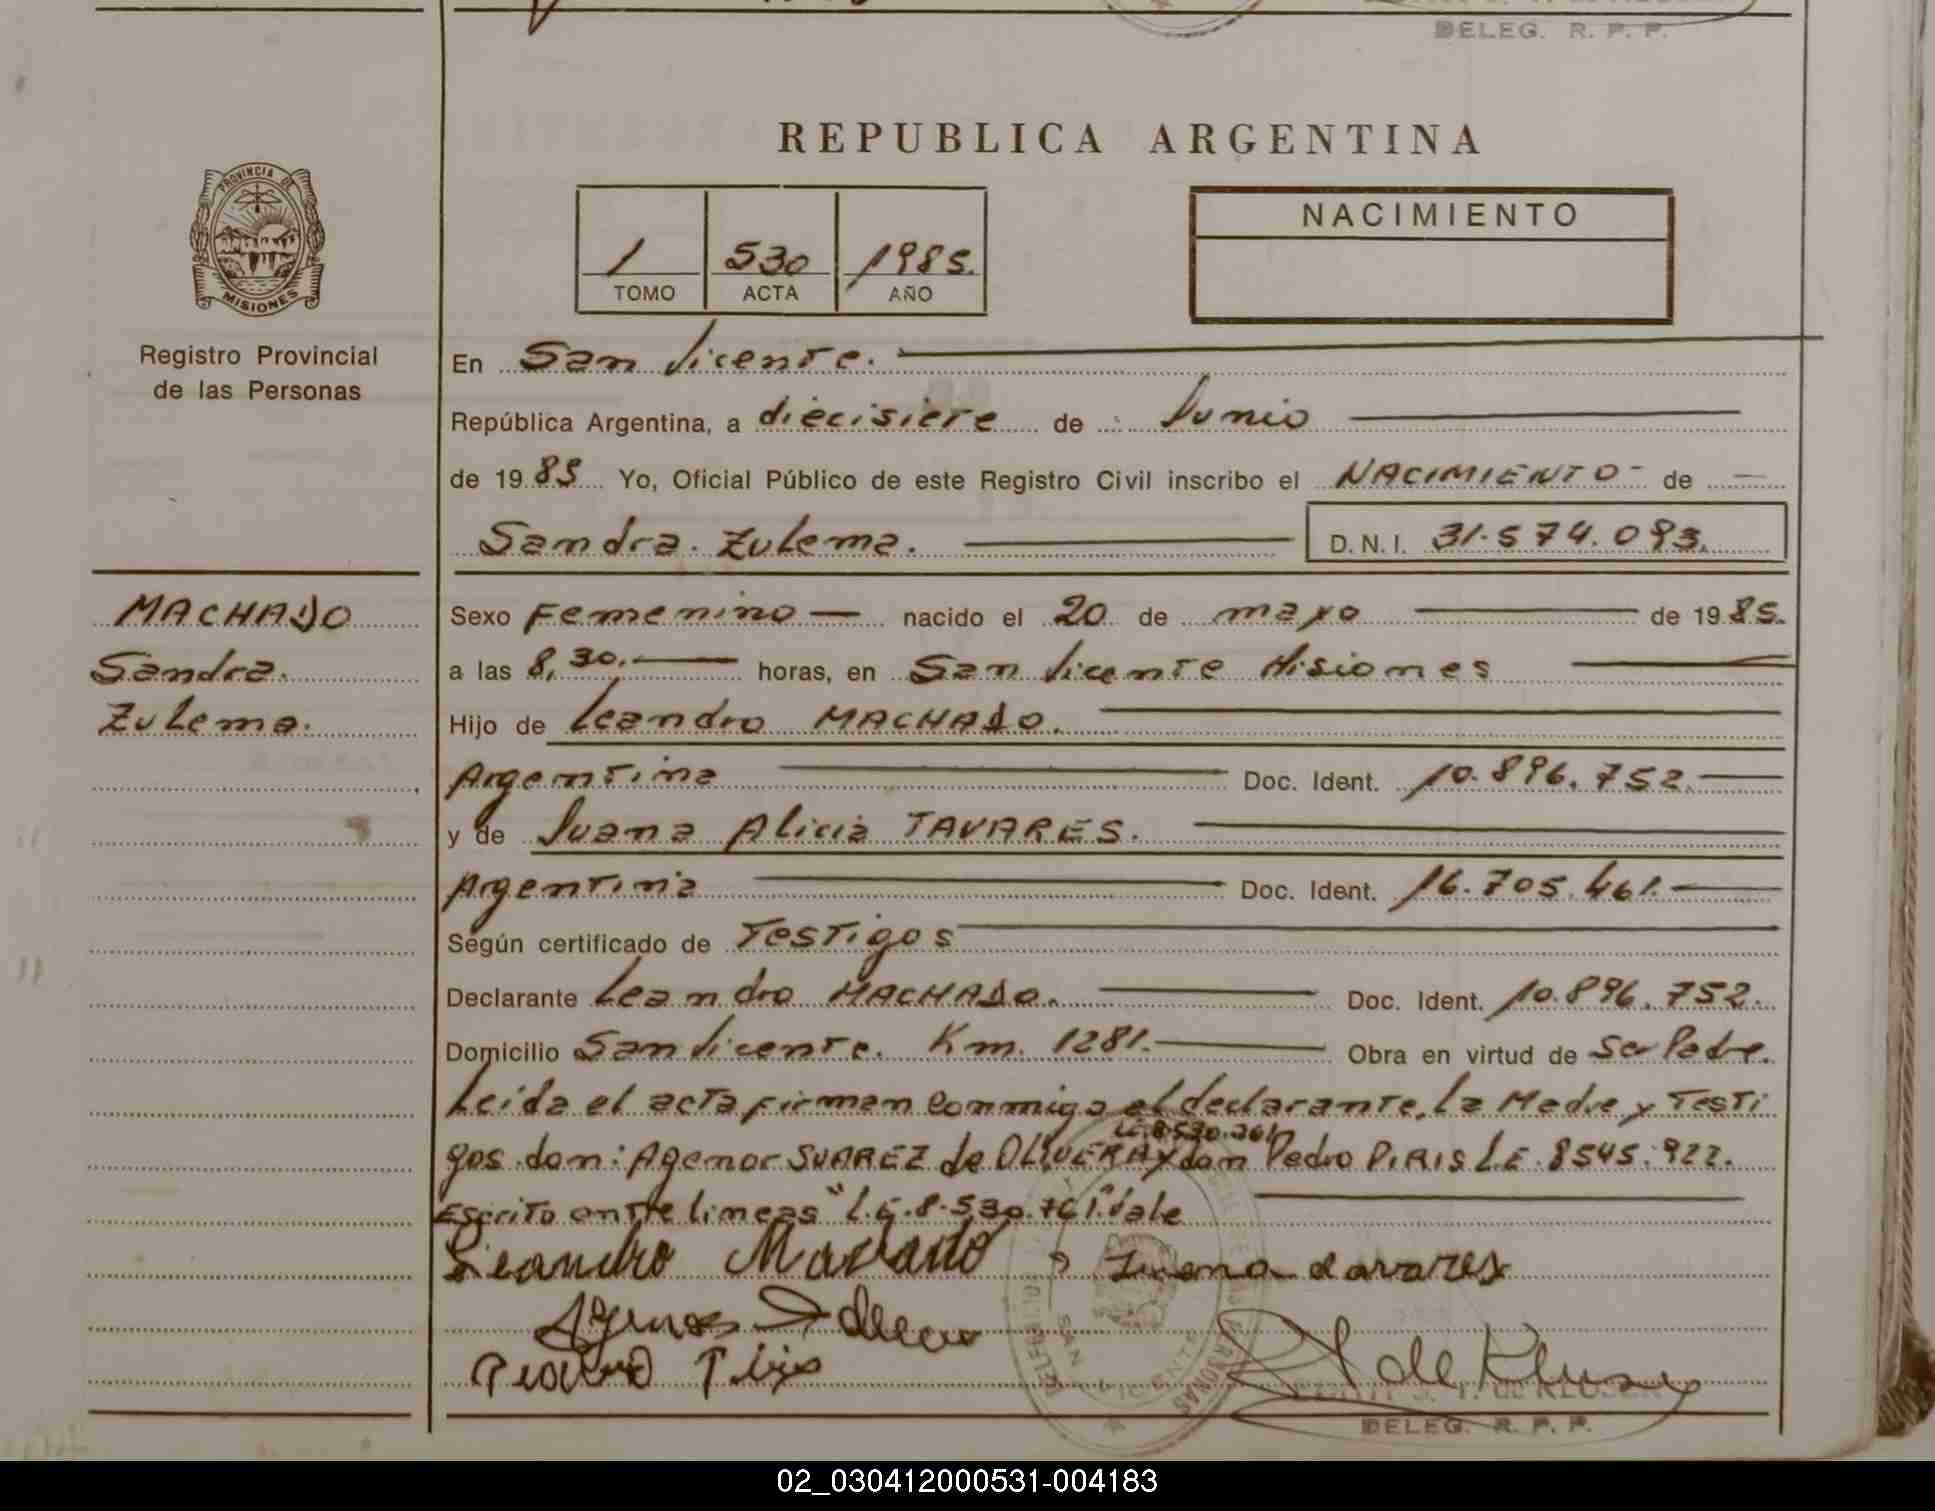 DELEG. R. P. P.
REPUBLICA ARGENTINA
PROVINCIA DE
MISIONES
Registro Provincial
de las Personas
1 530 1985.
TOMO ACTA AÑO
NACIMIENTO
En San Vicente.
República Argentina, a diecisiete de Junio
de 1985 Yo, Oficial Público de este Registro Civil inscribo el NACIMIENTO - de
Sandra Zulema. D. N. I. 31.574.093.
MACHADO
Sandra.
Zulema.
Sexo Femenino nacido el 20 de mayo de 1985.
a las 8,30. horas, en San Vicente Misiones
Hijo de Leandro MACHADO.
Argentina Doc. Ident. 10.896.752.
y de Juana Alicia TAVARES.
Argentina Doc. Ident. 16.705.461.
Según certificado de Testigos
Declarante Leandro MACHADO. Doc. Ident. 10.896.752.
Domicilio San Vicente. Km. 1281. Obra en virtud de Ser Padre.
Leida el acta firman Conmigo el declarante, la Madre y Testi
L.E.8.530.761
gos don: Agenor SUAREZ de OLIVERA y don Pedro PIRIS L.E. 8545.922.
Escrito entre lineas "L.E.8.530.761" Vale
Leandro Machado Juana tavarex
de Kluse
DELEG. R. P. P.
02_030412000531-004183